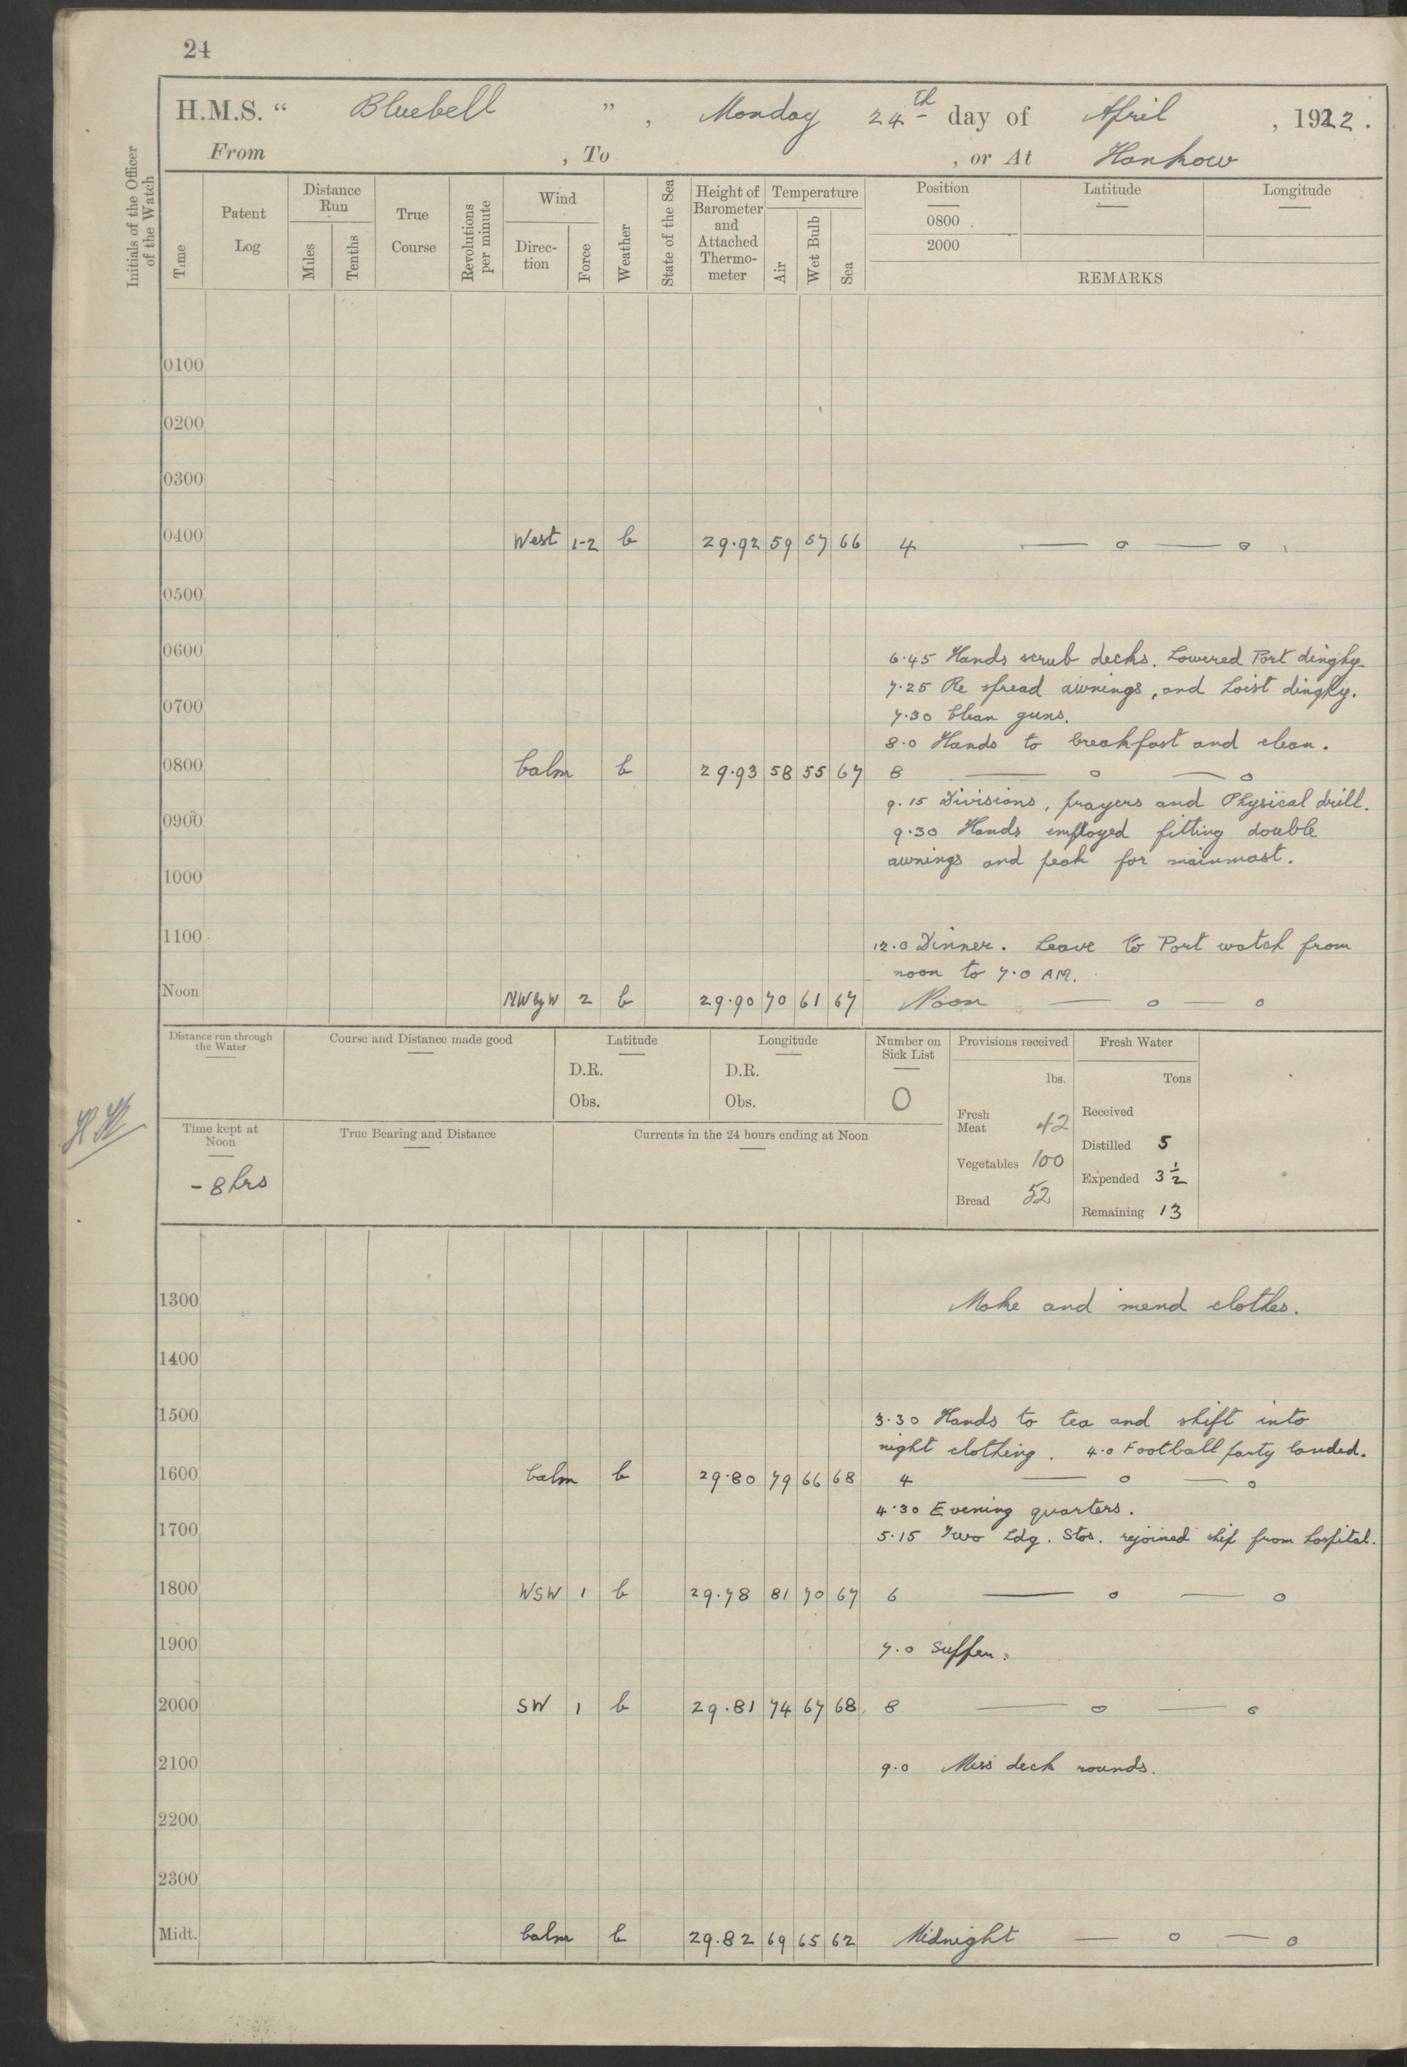 24
H.M.S. “ Bluebell ” , Monday 24th day of April , 1922 .
From , To , or At Hankow
Initials of the Officer of the Watch
Time
Patent Log
Distance Run
Miles
Tenths
True Course
Revolutions per minute
Wind
Direc-tion
Force
Weather
State of the Sea
Height of Barometer and Attached Thermo-meter
Temperature
Air
Wet Bulb
Sea
Position Latitude Longitude
0800
2000
REMARKS
0100
0200
0300
0400 West 1-2 b 29.92 59 57 66 4 — o — o
0500
0600
6.45 Hands scrub decks. Lowered Port dinghy.
7.25 Re spread awnings, and hoist dinghy.
0700
7.30 Clean guns.
8.0 Hands to breakfast and clean.
0800 Calm b 29.93 58 55 67 8 — o — o
9.15 Divisions, prayers and Physical drill.
0900
9.30 Hands employed fitting double
awnings and peak for mainmast.
1000
1100
12.0 Dinner. Leave to Port watch from
noon to 7.0 AM.
Noon NWbyW 2 b 29.90 70 61 67 Noon — o — o
Distance run through the Water
Course and Distance made good
Latitude
D.R.
Obs.
Longitude
D.R.
Obs.
Number on Sick List
0
Provisions received
lbs.
Fresh Meat 42
Vegetables 100
Bread 52
Fresh Water
Tons
Received
Distilled 5
Expended 3½
Remaining 13
Time kept at Noon
- 8 hrs
True Bearing and Distance
Currents in the 24 hours ending at Noon
1300 Make and mend clothes.
1400
1500
3.30 Hands to tea and shift into
night clothing. 4.0 Football party landed.
1600 Calm b 29.80 79 66 68 4 — o — o
4.30 Evening quarters.
1700
5.15 Two Ldg. Stos. rejoined ship from hospital.
1800 WSW 1 b 29.78 81 70 67 6 — o — o
1900
7.0 Supper.
2000 SW 1 b 29.81 74 67 68 8 — o — o
2100
9.0 Mess deck rounds.
2200
2300
Midt. Calm b 29.82 69 65 62 Midnight — o — o